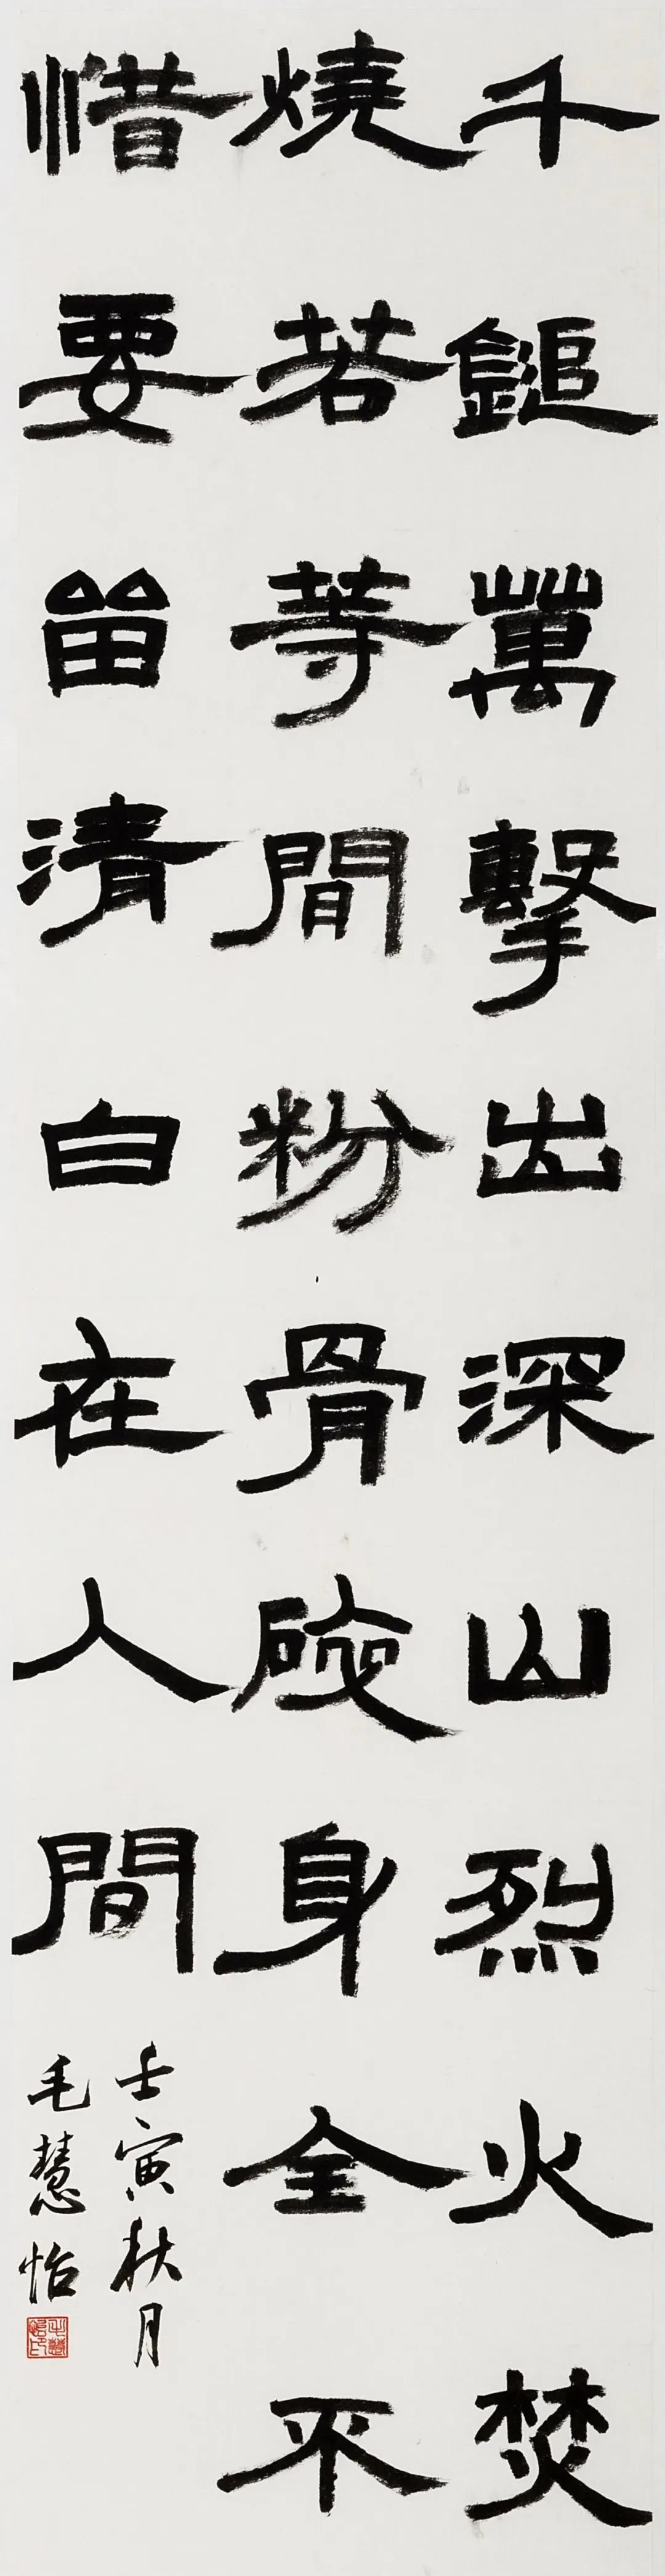 千鎚萬擊出深山烈火焚
燒若等間粉骨碎身全不
惜要留清白在人間
壬寅秋月
毛慧怡
毛慧怡印